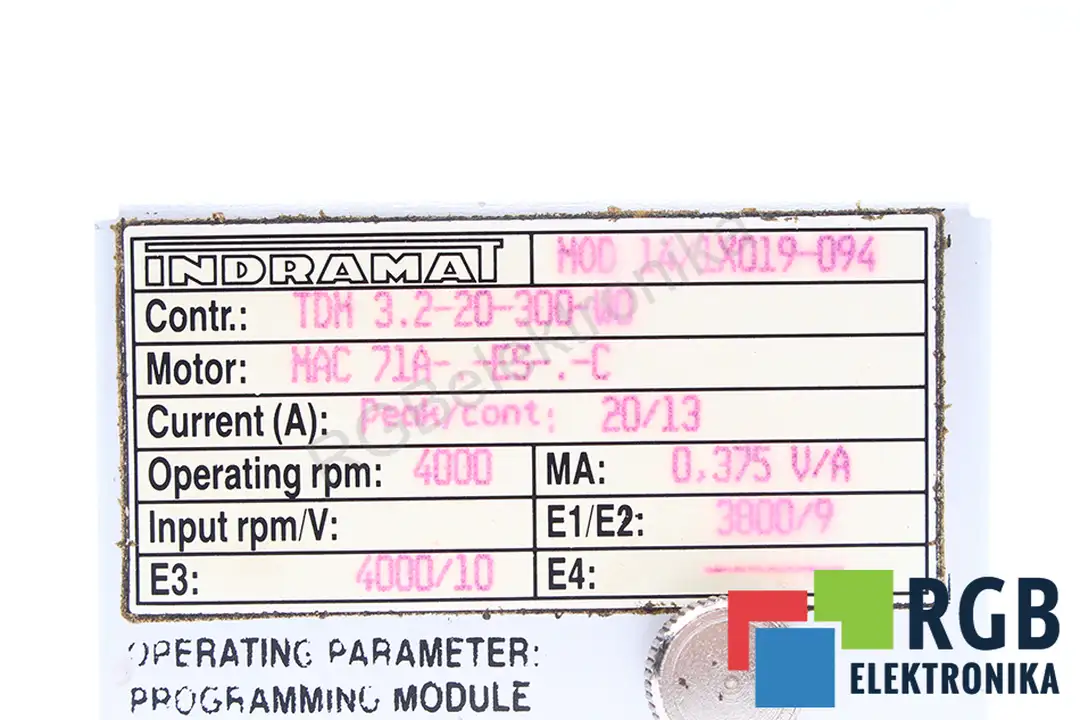 INDRAMAT MOD 14/1X019-094
Contr.: TDM 3.2-20-300-W0
Motor: MAC 71A- -ES-.-C
Current (A): Peak/cont: 20/13
Operating rpm: 4000 MA: 0,375 V/A
Input rpm/V: E1/E2: 3800/9
E3: 4000/10 E4:
OPERATING PARAMETER:
PROGRAMMING MODULE
RGBelektronika
RGB
ELEKTRONIKA